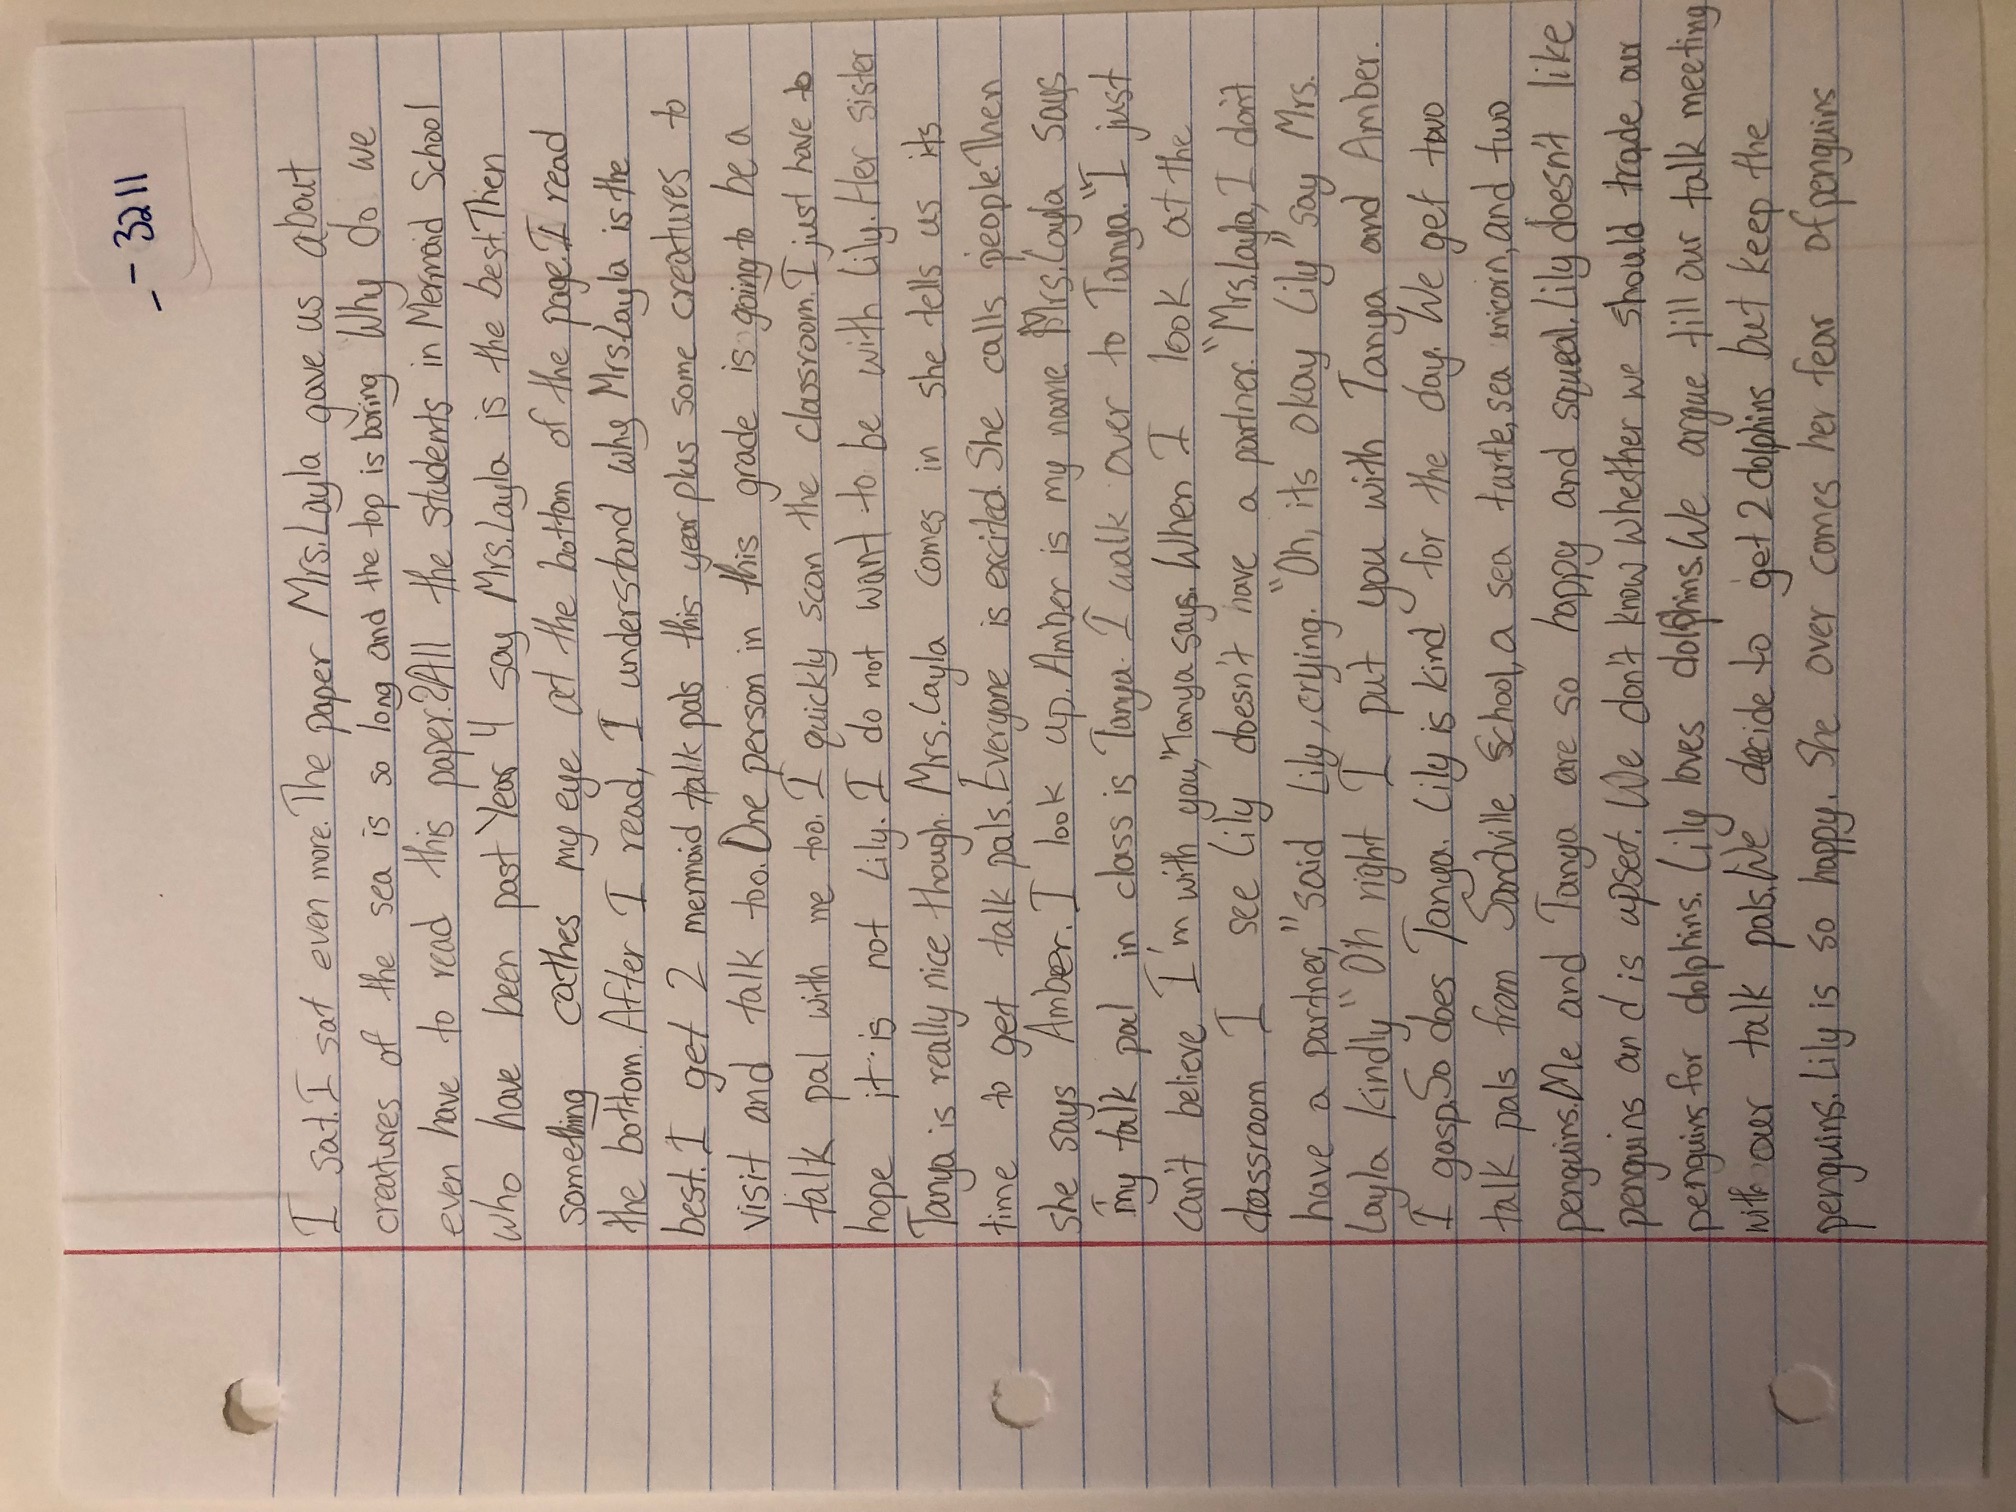 - - 3211
I sat. I sat even more. The paper Mrs. Layla gave us about
creatures of the sea is so long and the top is boring Why do we
even have to read this paper.? All the students in Mermaid School
who have been past Year 4 say Mrs. Layla is the best. Then
something cathes my eye at the bottom of the page. I read
the bottom. After I read, I understand why Mrs. Layla is the
best. I get 2 mermaid talk pals this year plus some creatures to
visit and talk too. One person in this grade is going to be a
talk pal with me too. I quickly scan the classroom. I just have to
hope it is not Lily. I do not want to be with Lily. Her sister
Tanya is really nice though. Mrs. Layla comes in she tells us its
time to get talk pals. Everyone is excited. She calls people. Then
she says Amber. I look up. Amber is my name Mrs. Layla says
my talk pal in class is Tanya. I walk over to Tanya. "I just
can't believe I'm with you," Tanya says. When I look at the
classroom I see Lily doesn't have a partner. "Mrs. Layla, I don't
have a partner," said Lily, crying. "Oh, its okay Lily" say Mrs.
Layla kindly "Oh right I put you with Tanya and Amber.
I gasp. So does Tanya. Lily is kind for the day. We get two
talk pals from Sandville School, a sea turtle, sea unicorn, and two
penguins. Me and Tanya are so happy and squeal. Lily doesn't like
penguins and is upset. We don't know whether we should trade our
penguins for dolphins. Lily loves dolphins. We argue till our talk meeting
with our talk pals. We decide to get 2 dolphins but keep the
penguins. Lily is so happy. She over comes her fear of penguins